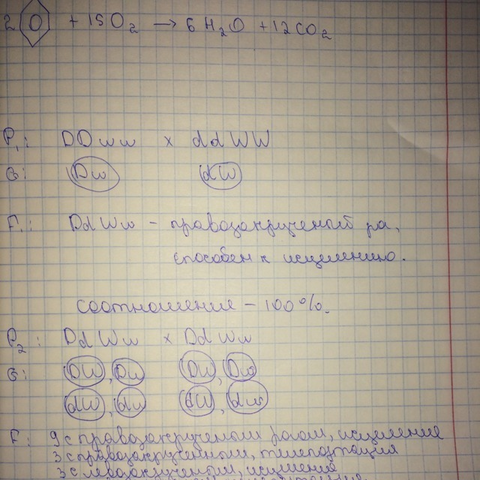 2 + 15O₂ → 6H₂O + 12CO₂
P₁: DDww x ddWW
G: Dw dW
F₁: DdWw – правозакрученый ра,
способен к исцелению.
соотношение – 100%.
P₂: DdWw x DdWw
G: DW, Dw DW, Dw
dW, dw dW, dw
F: 9 с правозакрученым рогом, исцеление
3 с правозакрученным, телепортация
3 с левозакрученым, исцеления